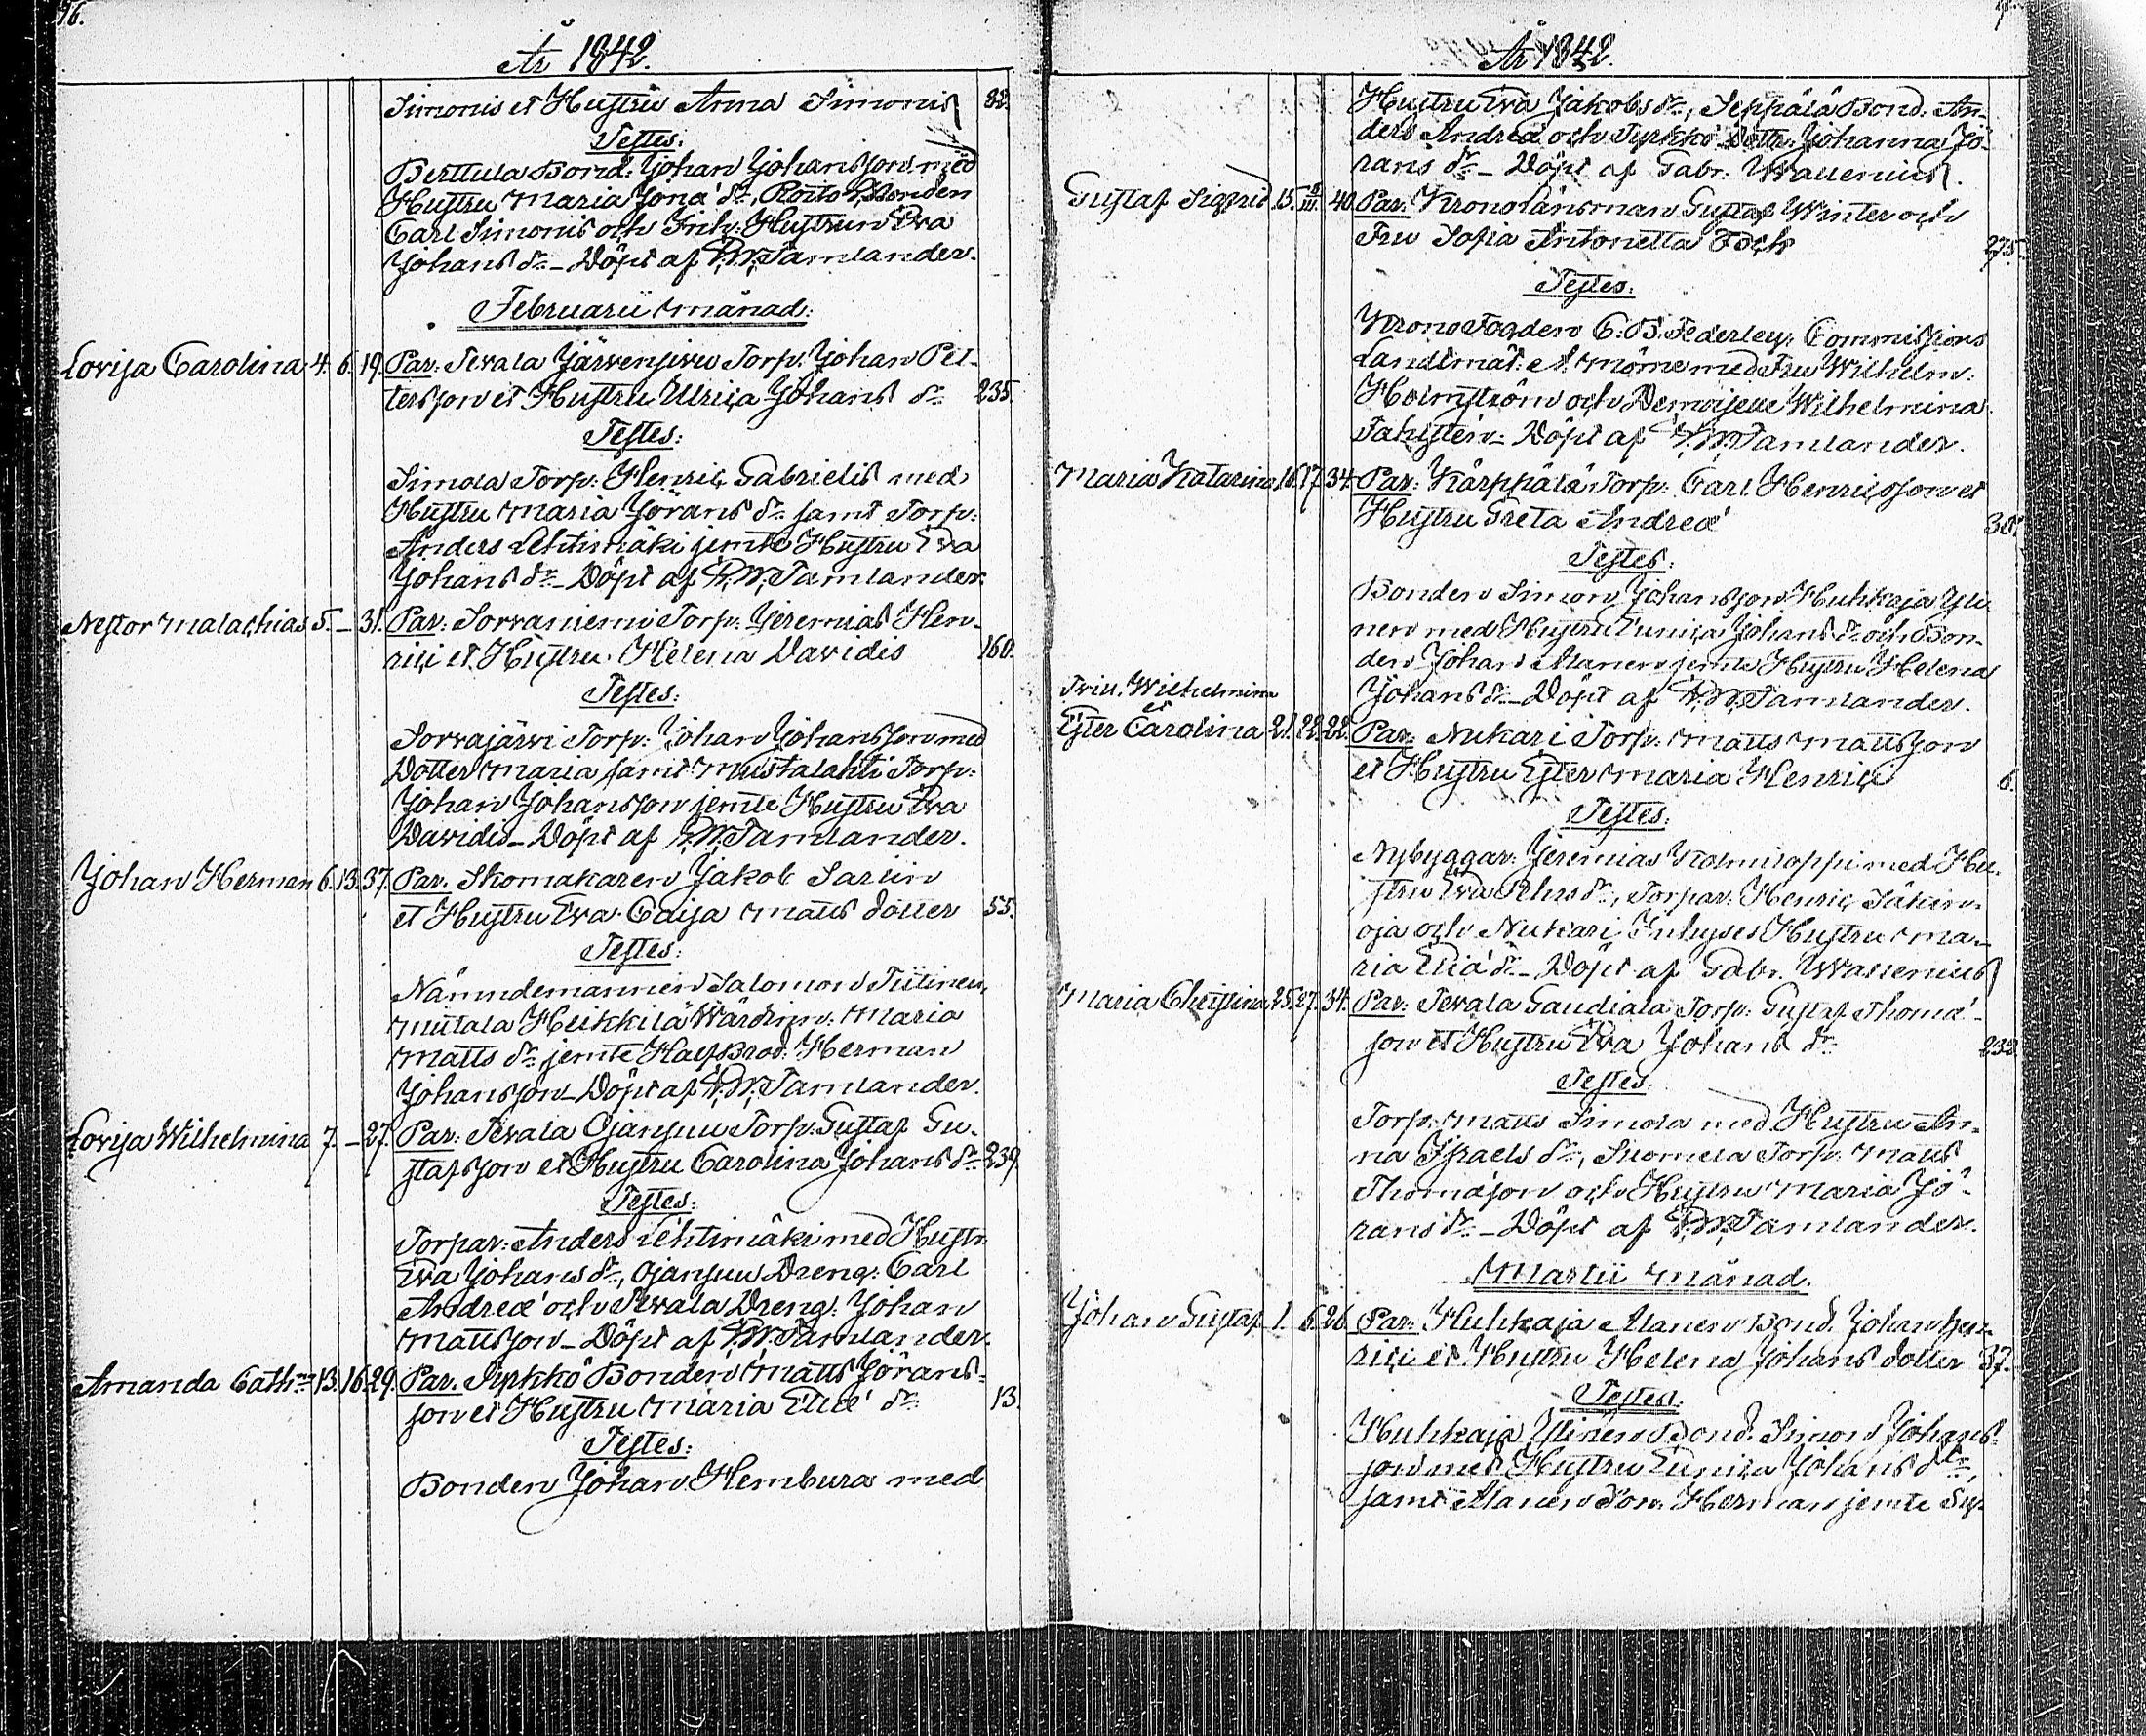 16.
År 1842.
Simonis et Hustru Anna Simonis 82.
Testes:
Berttula Bond: Johan Johansson med
Hustru Maria Jonæ dr, Bonden
Carl Simonis och Inh: Hustrun Eva
Johans dr - Döpt af P.W. Tamlander.
Februarii Månad:
Lovisa Carolina 4. 6. 19. Par: Tevala Järvensivu Torp. Johan Pet-
tersson et Hustru Ulrica Johans dr 235.
Testes:
Simola Torp: Henric Gabrielis med
Hustru Maria Jörans dr samt Torp:
Anders Lehtimäki jemte Hustru Eva
Johans dr - Döpt af P.W. Tamlander.
Nestor Malachias 5. - 31. Par: Sorvaniemi Torp: Jeremias Hen-
rici et Hustru Helena Davidis 160.
Testes:
Sorvajärvi Torp: Johan Johansson med
Dotter Maria samt Mustalahti Torp:
Johan Johansson jemte Hustru Eva
Davidis - Döpt af P.W. Tamlander.
Johan Herman 6. 13. 37. Par. Skomakaren Jakob Sariin
et Hustru Eva Caisa Matts dotter 55.
Testes:
Nämndemannen Salomon Tiitinen,
Mutala Heikkilä Wärdinn: Maria
Matts dr jemte HalfBrod: Herman
Johansson - Döpt af P.W. Tamlander.
Lovisa Wilhelmina 7. - 27. Par: Tevala Ojansuu Torp: Gustaf Gu-
stafsson et Hustru Carolina Johans dr 239.
Testes:
Torpar: Anders Lehtimäki med Hustr:
Eva Johans dr, Ojansuu Dreng: Carl
Andreæ och Tevala Dreng: Johan
Mattsson - Döpt af P.W. Tamlander.
Amanda Cathna 13. 16. 29. Par. Syrkkö Bonden Matts Jörans-
son et Hustru Maria Eliæ dr 13.
Testes:
Bonden Johan Hembura med
År 1842.
Hustru Eva Jakobs dr, Seppälä Bond: An-
ders Andreæ och Syrkkö Dottr: Johanna Jö-
rans dr - Döpt af Gabr: Wallenius.
Gustaf Sigfrid 15. 40. Par: Kronolänsman Gustaf Winter och
Fru Sofia Antonetta Fock 275.
Testes:
KronoFogden C: B. Federley, Commissions
Landtmät: A. Möme med Fru Wilhelm:
Holmström och Demoiselle Wilhelmina
Fahlstein - Döpt af P.W. Tamlander.
Maria Katarina 16. 17. 34. Par: Kärppälä Torp: Carl Henricsson et
Hustru Greta Andreæ
Testes:
Bonden Simon Johansson Huhkaja Yli-
nen med Hustru Eunica Johans dr och Bon-
den Johan Alanen jemte Hustru Helena
Johans dr - Döpt af P.W. Tamlander.
Trill. Wilhelmina
et
Ester Carolina 21. 22. 22. Par: Nukari Torp: Matts Mattsson
et Hustru Ester Maria Henrici 6.
Testes:
Nybyggar: Jeremias Kolmiloppi med Hu-
stru Eva Pehrs dr, Torpar: Henric Säkin-
oja och Nukari Inhyses Hustru Ma-
ria Eliæ dr - Döpt af Gabr. Wallenius
Maria Christina 25. 27. 34. Par: Tevala Gaudiala Torp: Gustaf Thomæ-
son et Hustru Eva Johans dr 232.
Testes:
Torp: Matts Simola med Hustru An-
na Israels dr, Suomela Torp: Matts
Thomæson och Hustru Maria Jö-
rans dr - Döpt af P.W. Tamlander.
Martii Månad.
Johan Gustaf 1. 6. 26. Par: Huhkaja Alanen Bond. Johan Hen-
rici et Hustru Helena Johans dotter 37.
Testes:
Huhkaja Ylinen Bond. Simon Johans-
son med Hustru Eunica Johans dr,
samt Alanen Son: Herman jemte Sy-